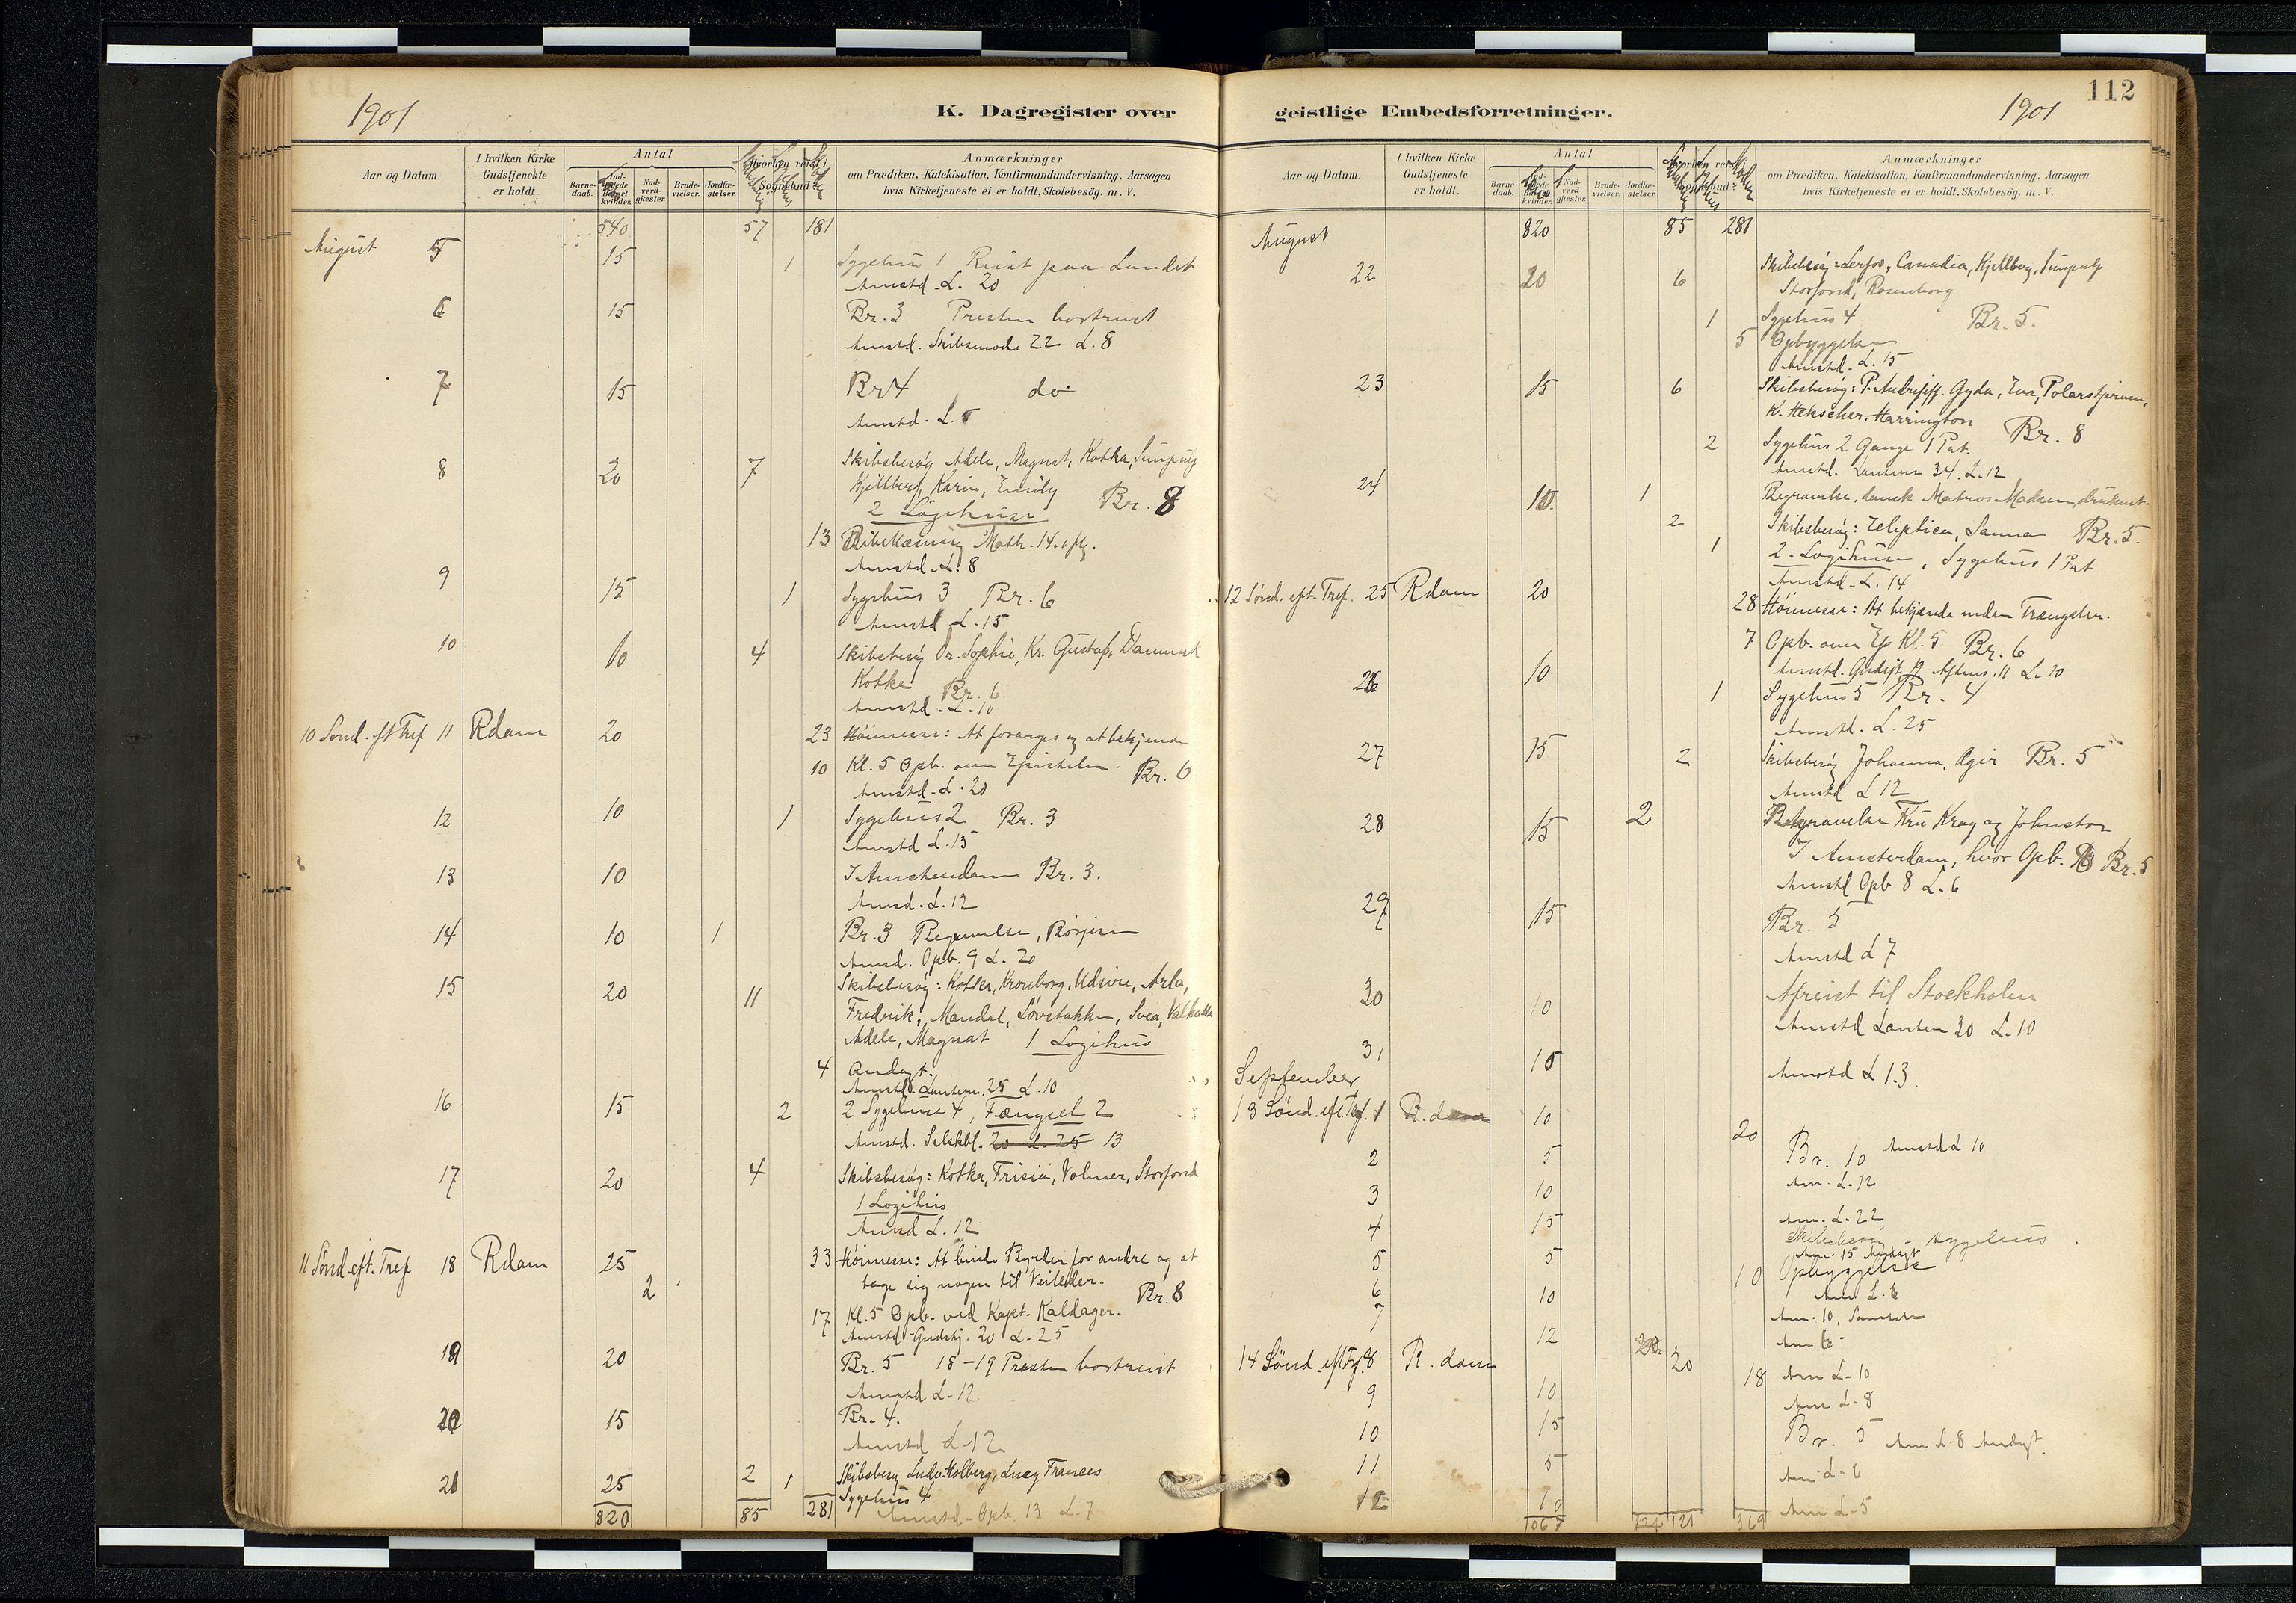 112
1901
K. Dagregister over
Aar og Datum.
I hvilken Kirke Gudstjeneste er holdt.
Antal
Barnedaab.
Nadverdgjæster.
Brudevielser.
Jordfæstelser.
Anmærkninger
om Prædiken, Katekisation, Konfirmandundervisning. Aarsagen
hvis Kirketjeneste ei er holdt. Skolebesög. m. V.
540 57 181
August 5 15 1 Sygehus 1 Reist paa Landet
Amstd. L. 20
6 15 Br. 3 Presten bortreist
Amstd. 22 L. 8
7 15 Br 4 do
Amstd. L. 5
8 20 7 Skibsbesøg Adele, Magnat, Kotka,
Kjellberg, Karin, Emily Br. 8
2 Logihuse
13 Bibellæsning Math. 14.
Amstd. L. 8
9 15 1 Sygehus 3 Br. 6
Amstd L. 15
10 10 4 Skibsbesøg Dr. Sophie, Kr. Gustaf, Danmark
Kotka Br. 6.
Amstd. L. 10
10 Sönd. eft Tref 11 Rdam 20 23 Høimesse: At forarges og at bekjende
10 Kl. 5 Opb. over Epistelen. Br. 6
Amstd. L. 20
12 10 1 Sygehus 2 Br. 3
Amstd L. 15
13 10 I Amsterdam Br. 3.
Amsd. L. 12
14 10 1 Br. 3 Begravelse, Børjesen
Amsd. Opb. 9 L. 20
15 20 11 Skibsbesøg: Kotka, Kronborg, Udsire, Arla,
Fredrik, Mandal, Løvstakken, Svea, Valhalla
Adele, Magnat 1 Logihus
4 Andagt.
Amstd. Lantern. 25 L. 10
16 15 2 2 Sygehuse 4, Fængsel 2
Amstd. Selskbl. 20 L. 25 13
17 20 4 Skibsbesøg: Kotka, Frisia, Volmer, Storfond
1 Logihus
Amsd L. 12
11 Sönd. eft. Tref 18 Rdam 25 33 Høimesse: At binde Byrder for andre og at
2 tage sig nogen til Veileder. Br. 8
17 Kl. 5 Opb. ved Kapt. Kaldager.
Amstd Gudstj. 20 L. 25
19 20 Br. 5 18-19 Presten bortreist
Amstd L. 12
20 15 Br. 4.
Amstd L 12
21 25 2 1 Skibsbesøg Ludv. Holberg, Lucy Frances
Sygehus 4
820 85 281 Amstd. Opb. 13 L. 7
geistlige Embedsforretninger.
1901
Aar og Datum.
I hvilken Kirke Gudstjeneste er holdt.
Antal
Barnedaab.
Nadverdgjæster.
Brudevielser.
Jordfæstelser.
Anmærkninger
om Prædiken, Katekisation, Konfirmandundervisning. Aarsagen
hvis Kirketjeneste ei er holdt. Skolebesög. m. V.
August 820 85 281
22 20 6 Skibsbesøg: Lerfos, Canadia, Kjellberg,
Storfond, Rosenborg
1 Sygehus 4 Br. 5.
5 Opbyggelse
Amstd. L. 15
23 15 6 Skibsbesøg: Gyda, Eva, Polarstjernen,
K. Hekscher. Harrington Br. 8
2 Sygehus 2 Gange 1 Pat.
Amstd. Lantern 34. L. 12
24 10 1 Begravelse, dansk Matros Madsen, druknet.
2 Skibsbesøg: Ecliptica, Sanna Br. 5.
1 2 Logihuse, Sygehus 1 Pat
Amstd. L. 14
12 Sönd. eft. Tref. 25 Rdam 20 28 Høimesse: At bekjende under Trængsler.
7 Opb. over Ep Kl. 5 Br. 6
Amstd. Gudstj 19 Aftens. 11 L. 20
26 10 1 Sygehus 5 Br. 4
Amstd. L. 25
27 15 2 Skibsbesøg Johanna, Ægir Br. 5
Amstd L 12
28 15 2 Begravelse Fru Krag og Johnston
I Amsterdam, hvor Opb. Br. 5
Amstd Opb 8 L. 6
29 15 Br. 5
Amstd L 7
30 10 Afreist til Stockholm
Amstd Lantern 30 L. 10
31 10 Amstd L 13.
September
13 Sönd. eft Tref. 1 R.dam 10 20 Br. 10 Amstd L 10
2 5 Am. L. 12
3 10 Am. L. 22
4 15 Skibsbesøg - sygehus.
Am. 15 Andagt
5 5 10 Opbyggelse
6 10 Am L. 6
7 12 Am. 10,
Am 6
14 Sönd. eft Tref. 8 R. dam 20 18 Am L. 10
9 10 Am L. 8
10 15 Br. 5 Am L. 8 Andagt.
11 5 Am L. 6
12 10 Am L. 5
1067 124 121 369